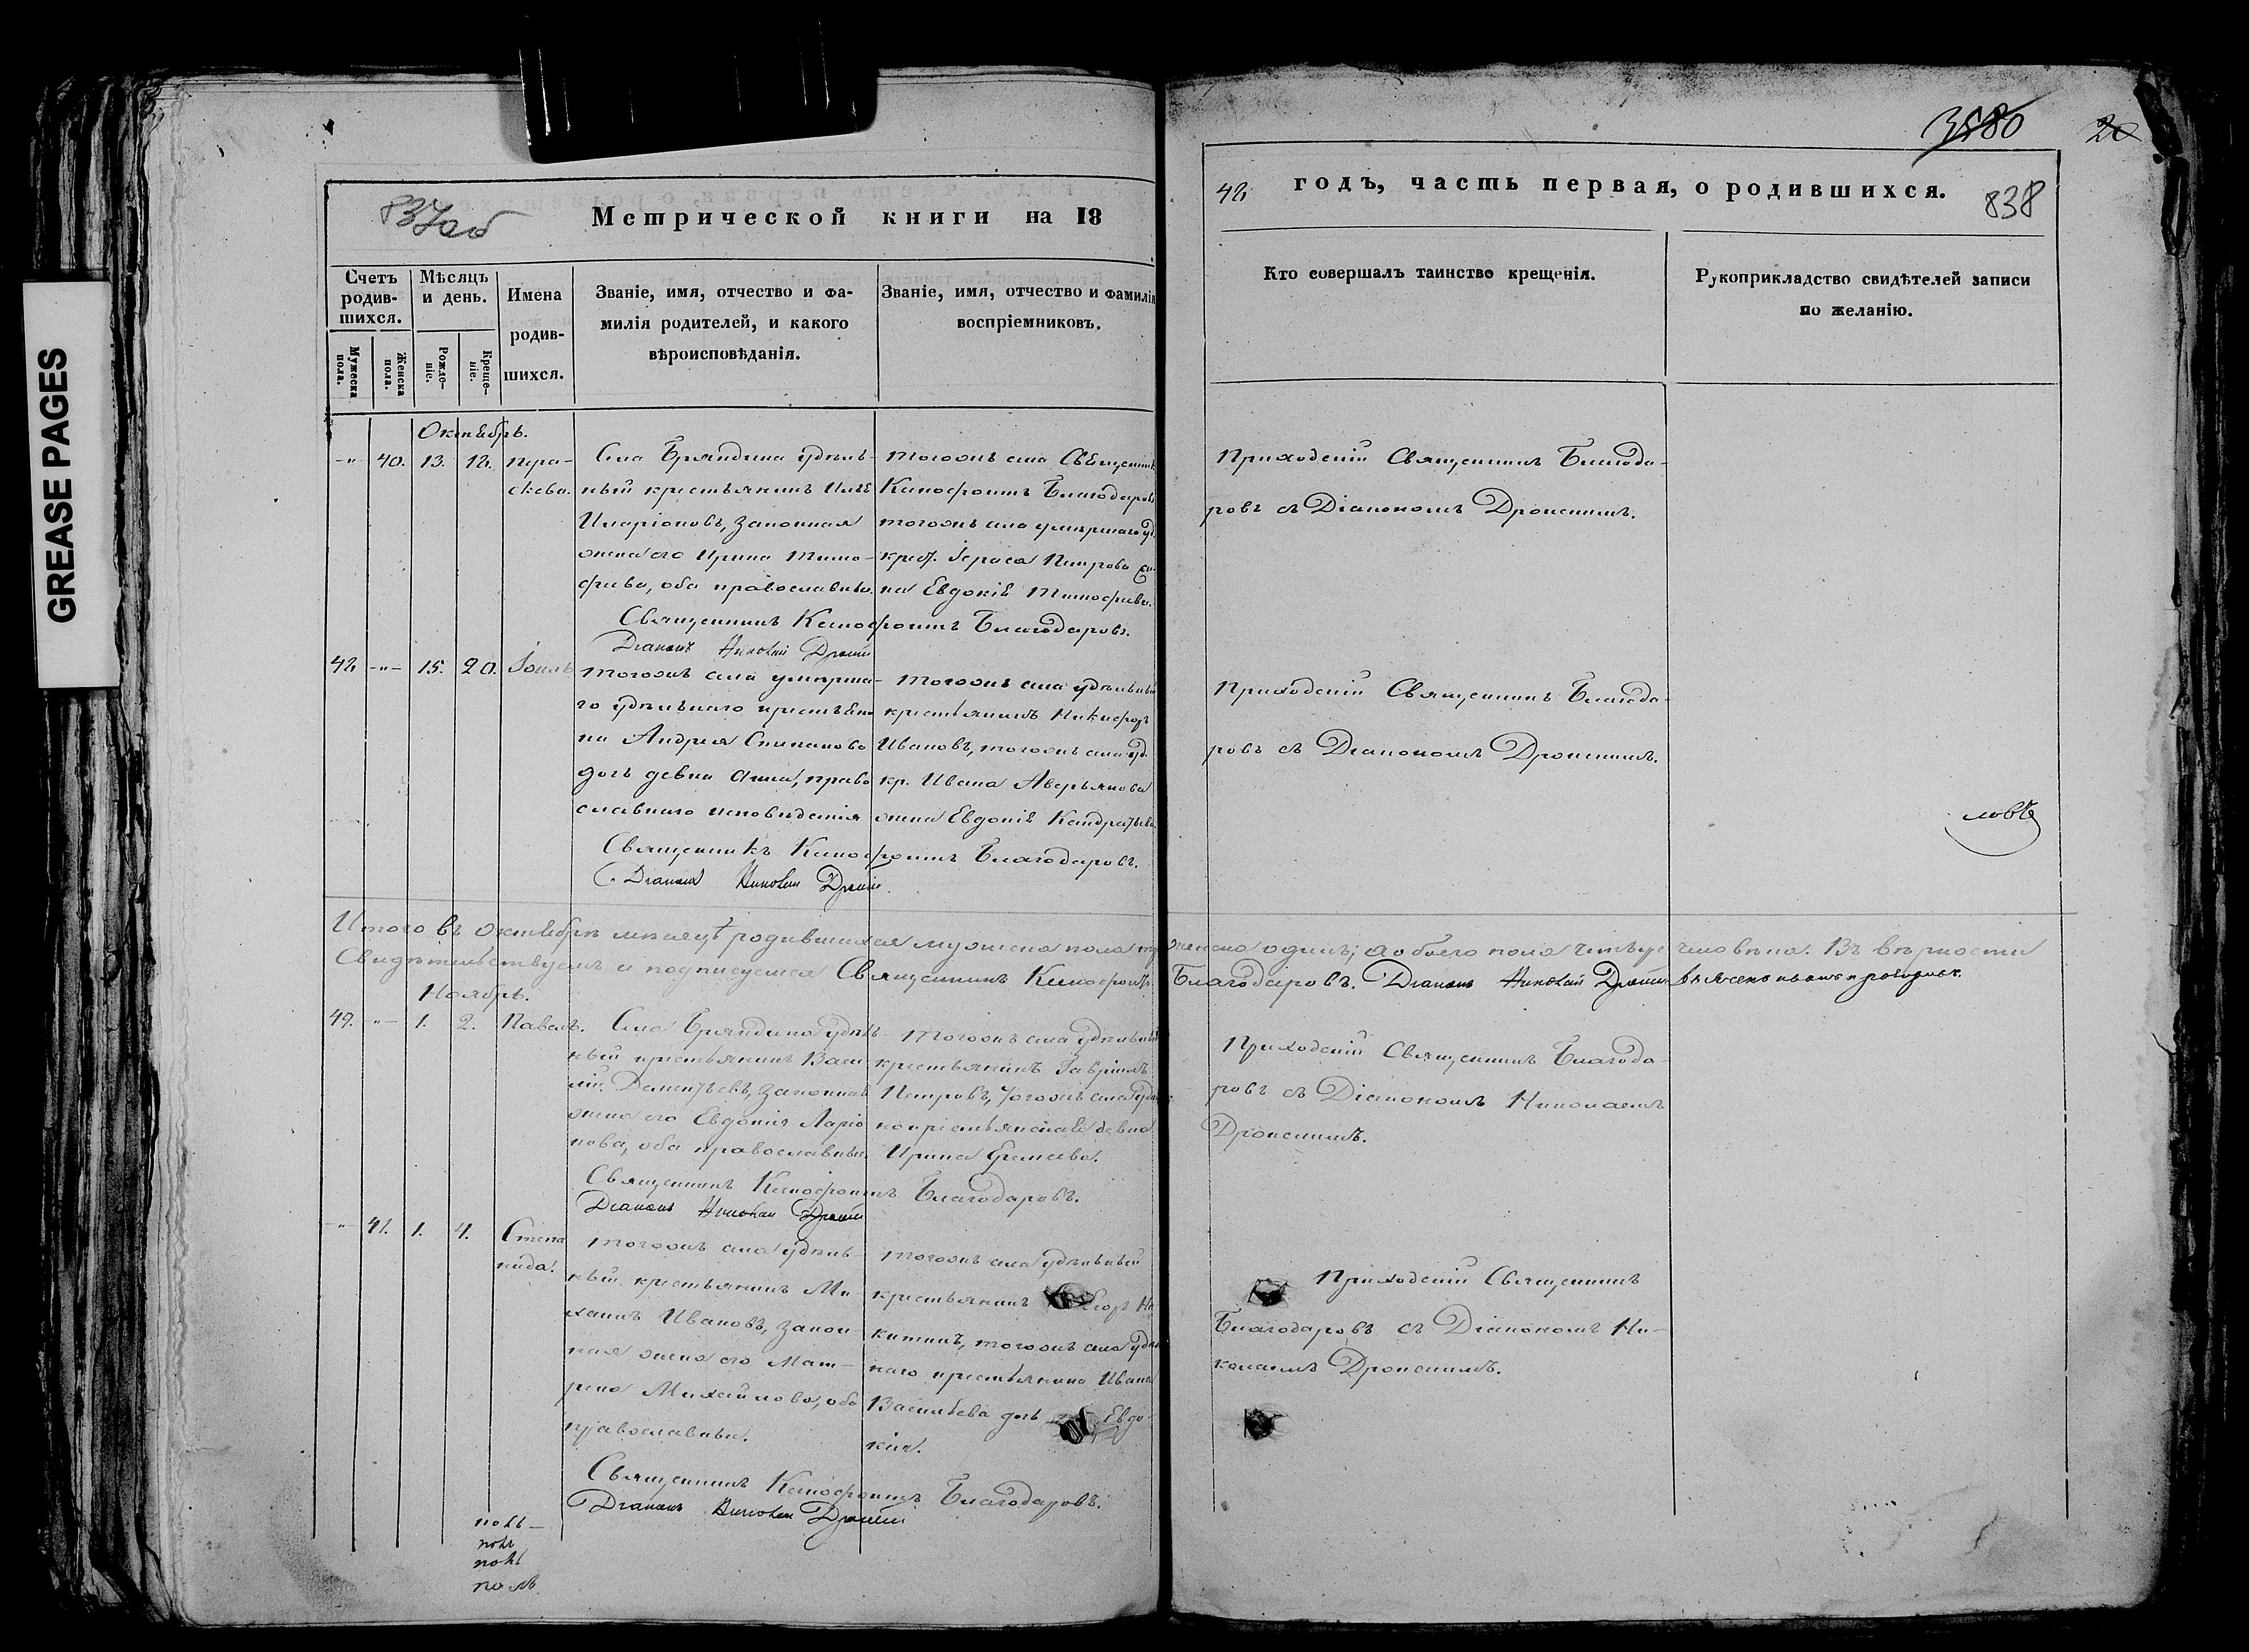 GREASE PAGES
Метрической книги на 18
Счетъ родив-шихся.
Мужеска пола.
Женска пола.
Мѣсяцъ и день.
Рожде-ніе.
Креще-ніе.
Имена
родив-
шихся.
Званіе, имя, отчество и фа-
милія родителей, и какого
вѣроисповѣданія.
Званіе, имя, отчество и фамилія
воспріемниковъ.
Октябрь.
-"- 40. 13. 18. Пара-
скева.
Села Бряндина удѣль-
ный крестьянинъ
Иларіоновъ, законная
жена его Ирина Тимо-
фѣева, оба православные.
тогожъ села Священникъ
Ксенофонтъ Благодаровъ
тогожъ села умершаго уд.
крест. Петрова
на Евдокія Тимофѣева.
Священникъ Ксенофонтъ Благодаровъ.
Діаконъ Николай
48 -"- 15. 20. Іоиль
тогожъ села умерша-
го удѣльнаго крестьяни-
на Андрея Степанова
дочь девка Анна, право
славнаго исповѣданія
тогожъ села удѣльный
крестьянинъ Никифоръ
Ивановъ, тогожъ села уд.
кр. Ивана Аверьянова
жена Евдокія Кандратьева.
Священникъ Ксенофонтъ Благодаровъ.
Діаконъ Николай
Итого въ Октябрѣ мѣсяцѣ родившихся мужеска пола
Свидѣтельствуемъ и подписуемся Священникъ Ксенофонтъ
Ноябрь.
49. -"- 1. 2. Павелъ.
Села Бряндина удѣль-
ный крестьянинъ Васи-
лій Дементьевъ, законная
жена его Евдокія Ларіо
нова, оба православные.
тогожъ села удѣльный
крестьянинъ Гавріилъ
Петровъ, тогожъ села
девка
Ирина Еремеева.
Священникъ Ксенофонтъ Благодаровъ.
Діаконъ Николай
-"- 41. 1. 4. Степа
нида.
тогожъ села удѣль-
ный крестьянинъ Ми-
хаилъ Ивановъ, закон-
ная жена его Мат-
рена Михайлова, оба
православные.
тогожъ села удѣльный
крестьянинъ Егоръ Ни
китинъ, тогожъ села удѣль
наго крестьянина Ивана
Васильева дочь Евдо-
кія.
Священникъ Ксенофонтъ Благодаровъ.
Діаконъ Николай
3580 20
48 годъ, часть первая, о родившихся. 838
Кто совершалъ таинство крещенія.
Рукоприкладство свидѣтелей записи
по желанію.
Приходскій Священникъ Благода-
ровъ съ Діакономъ
Приходскій Священникъ Благода-
ровъ съ Діакономъ
женска одинъ; а обоего пола четыре человѣка. Въ вѣрности
Благодаровъ. Діаконъ Николай
Приходскій Священникъ Благода-
ровъ съ Діакономъ Николаемъ
Приходскій Священникъ
Благодаровъ съ Діакономъ Ни-
колаемъ